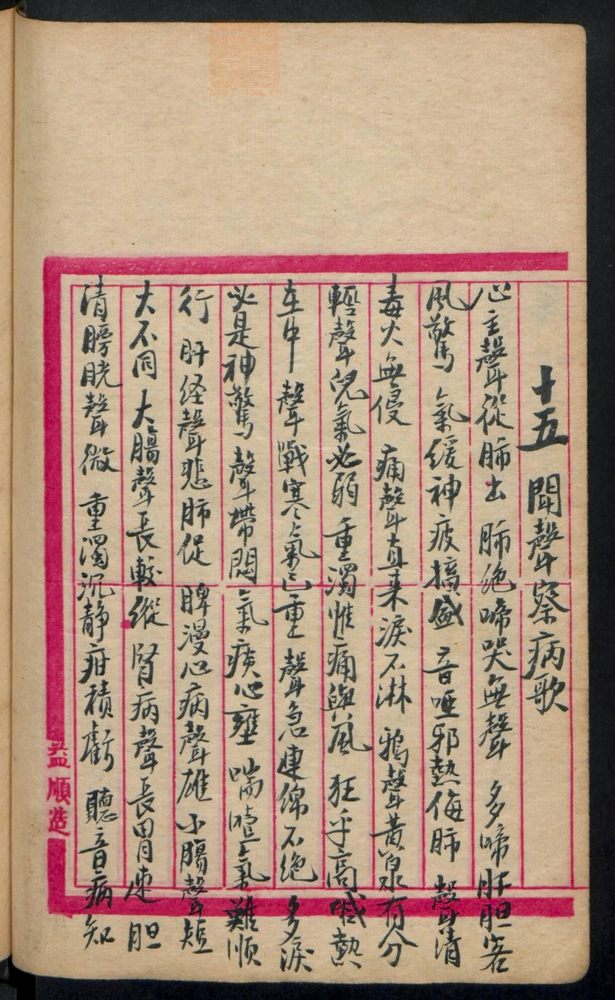 十五 聞聲察病歌
心主聲從肺出 肺絶啼哭無聲 多啼肝胆客
風驚 氣緩神疲搐盛 音啞邪熱侮肺 聲清
毒火無侵 痛聲直來淚不淋 鴉聲黄泉有分
輕聲兒氣必弱 重濁惟痛與風 狂乎高喊熱
在中 聲戰寒氣已重 聲急連綿不絶 多淚
必是神驚 聲帶悶氣痰心壅 喘噎氣難順
行 肝经聲悲肺促 脾漫心病聲雄 小腸聲短
大不同 大腸聲長較縱 腎病聲長胃速 胆
清膀胱聲微 重濁沉静疳積虧 聽音病知
益順造